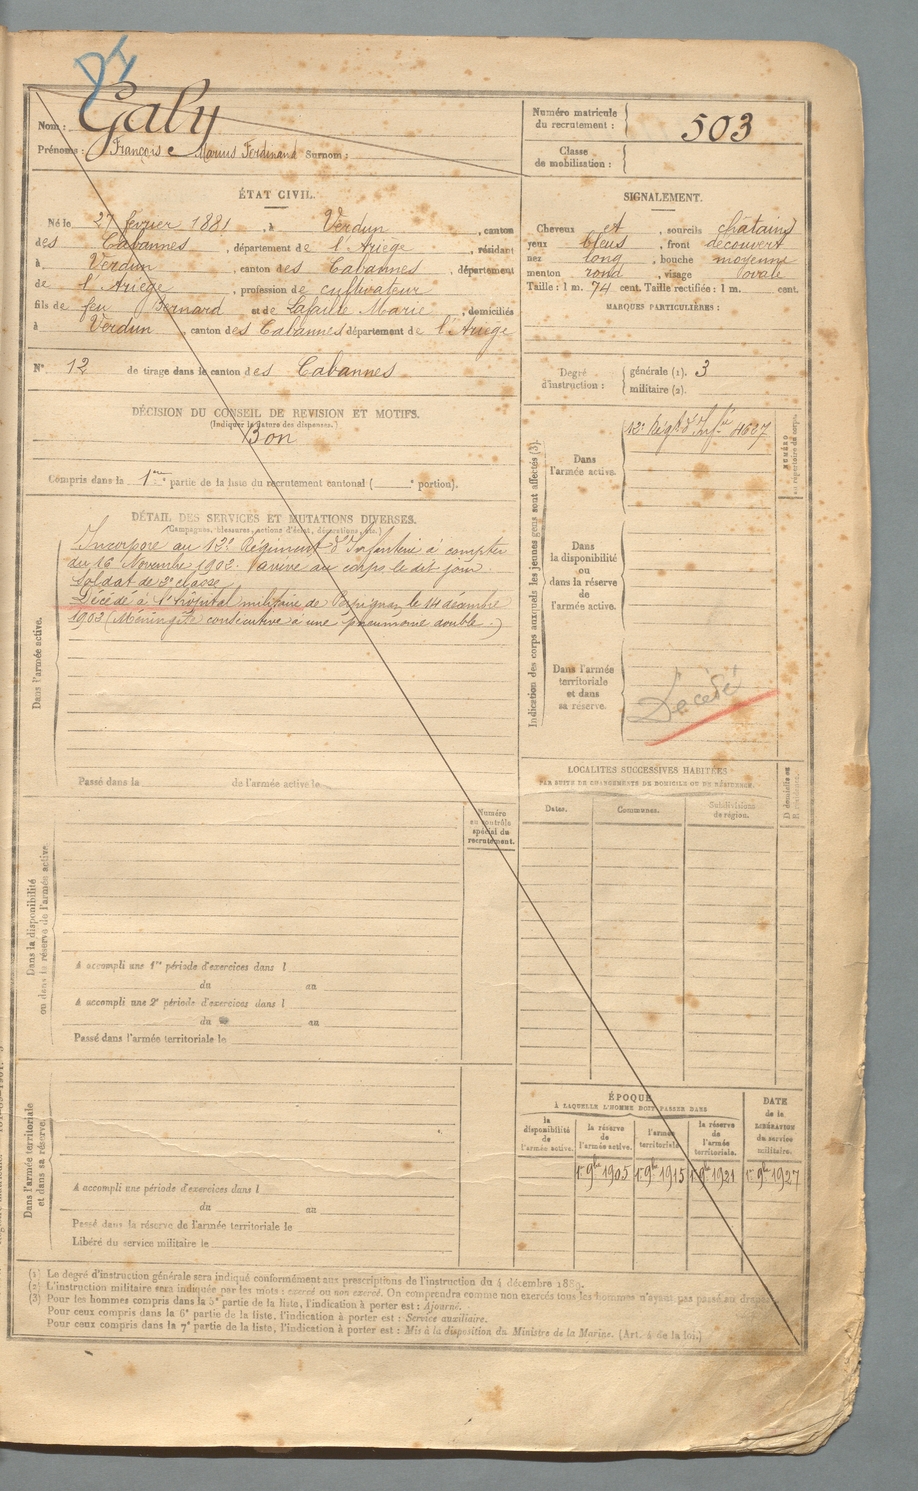 Nom : Galy
Prénoms : François Marius Ferdinand Surnom :
Numéro matricule du recrutement : 503
Classe de mobilisation :
ÉTAT CIVIL.
Né le 27 février 1881, à Verdun, canton
des Cabannes, département de l'Ariège, résidant
à Verdun, canton des Cabannes, département
de l'Ariège, profession de cultivateur
fils de feu Bernard et de Lafaille Marie, domiciliés
à Verdun, canton des Cabannes département de l'Ariège
N° 12 de tirage dans le canton des Cabannes
SIGNALEMENT.
Cheveux et, sourcils châtains
yeux bleus, front découvert
nez long, bouche moyenne
menton rond, visage ovale
Taille : 1 m. 74 cent. Taille rectifiée : 1 m. cent.
MARQUES PARTICULIÈRES :
Degré d'instruction : générale (1). 3
militaire (2).
DÉCISION DU CONSEIL DE REVISION ET MOTIFS.
(Indiquer la nature des dispenses.)
Bon
Compris dans la 1re partie de la liste du recrutement cantonal ( portion).
DÉTAIL DES SERVICES ET MUTATIONS DIVERSES.
(Campagnes, blessures, actions d'éclat, décorations, etc.)
Dans l'armée active.
Incorporé au 12e Régiment d'Infanterie à compter
du 16 Novembre 1902. Arrivé au corps le dit jour
Soldat de 2e classe.
Décédé à l'hôpital militaire de Perpignan le 14 décembre
1902 (Méningite consécutive à une pneumonie double.)
Passé dans la de l'armée active le
Indication des corps auxquels les jeunes gens sont affectés (3).
NUMÉRO au répertoire du corps.
Dans l'armée active.
12e Régt d'Infie 4607
Dans la disponibilité ou dans la réserve de l'armée active.
Dans l'armée territoriale et dans sa réserve.
Décédé
LOCALITÉS SUCCESSIVES HABITÉES
PAR SUITE DE CHANGEMENTS DE DOMICILE OU DE RÉSIDENCE.
Dates.
Communes.
Subdivisions de région.
Dans la disponibilité ou dans la réserve de l'armée active
Numéro au contrôle spécial du recrutement.
A accompli une 1re période d'exercices dans l
du au
A accompli une 2e période d'exercices dans l
du au
Passé dans l'armée territoriale le
Dans l'armée territoriale et dans sa réserve.
A accompli une période d'exercices dans l
du au
Passé dans la réserve de l'armée territoriale le
Libéré du service militaire le
ÉPOQUE
À LAQUELLE L'HOMME DOIT PASSER DANS
la disponibilité de l'armée active.
la réserve de l'armée active.
l'armée territoriale.
la réserve de l'armée territoriale.
DATE de la LIBÉRATION du service militaire.
1er 9bre 1905 1er 9bre 1915 1er 9bre 1921 1er 9bre 1927
(1) Le degré d'instruction générale sera indiqué conformément aux prescriptions de l'instruction du 4 décembre 1889.
(2) L'instruction militaire sera indiquée par les mots : exercé ou non exercé. On comprendra comme non exercés tous les hommes n'ayant pas passé au drapeau
(3) Pour les hommes compris dans la 5e partie de la liste, l'indication à porter est : Ajourné.
Pour ceux compris dans la 6e partie de la liste, l'indication à porter est : Service auxiliaire.
Pour ceux compris dans la 7e partie de la liste, l'indication à porter est : Mis à la disposition du Ministre de la Marine. (Art. 4 de la loi.)